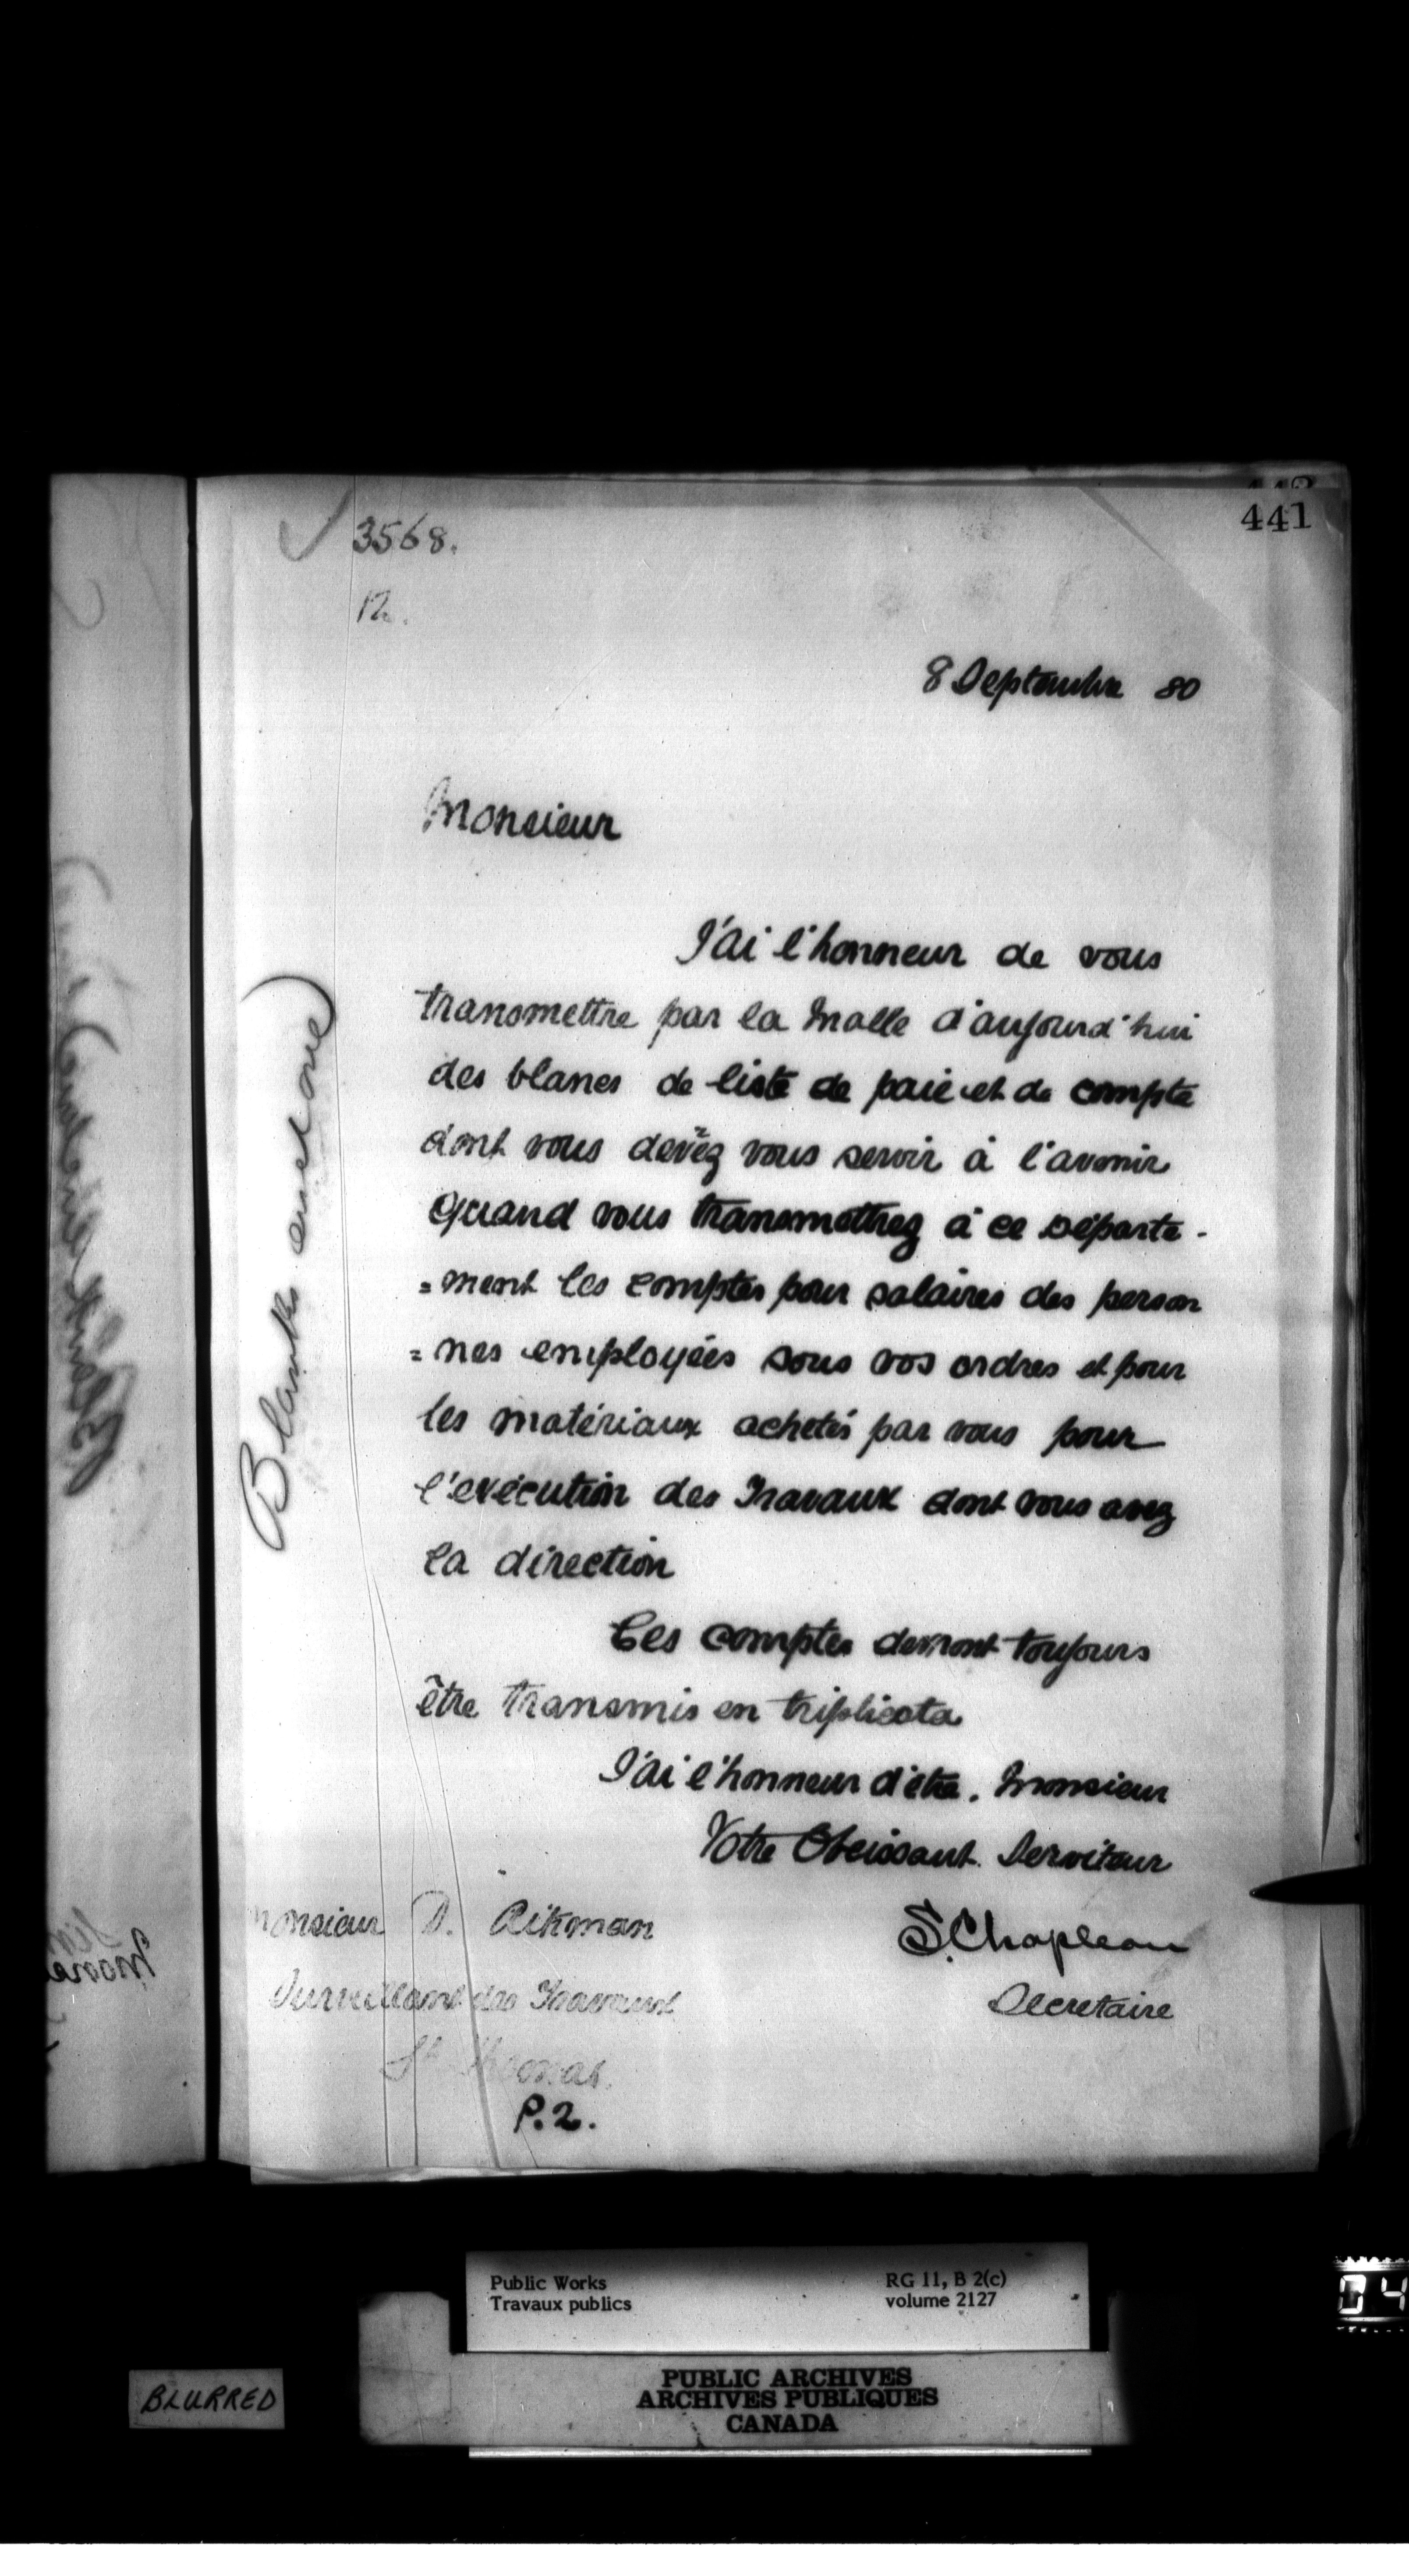 441
3568.
12.
8 Septembre 80
Monsieur
J'ai l'honneur de vous
transmettre par la Malle d'aujourd'hui
des blancs de liste de paie et de compte
dont vous devez vous servir à l'avenir
quand vous transmettrez à ce Départe-
=ment les comptes pour salaires des person
=nes employées sous vos ordres et pour
les matériaux achetés par vous pour
l'exécution des Travaux dont vous avez
la direction
Ces comptes devront toujours
être transmis en triplicata
J'ai l'honneur d'être. Monsieur
Votre Obeissant Serviteur
S. Chapleau
Secretaire
Monsieur D. Aikman
Surveillant des Travaux
St Thomas.
P.2.
Blanks enclosed
Public Works
Travaux publics
RG 11, B 2(c)
volume 2127
PUBLIC ARCHIVES
ARCHIVES PUBLIQUES
CANADA
BLURRED
04